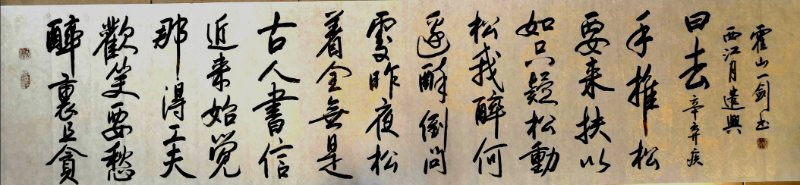 醉裏且貪
歡笑要愁
那得工夫
近来始觉
古人書信
着全無是
處昨夜松
邊醉倒問
松我醉何
如只疑松動
要来扶以
手推松
曰去 辛弃疾
西江月遣興
霍山一剑书